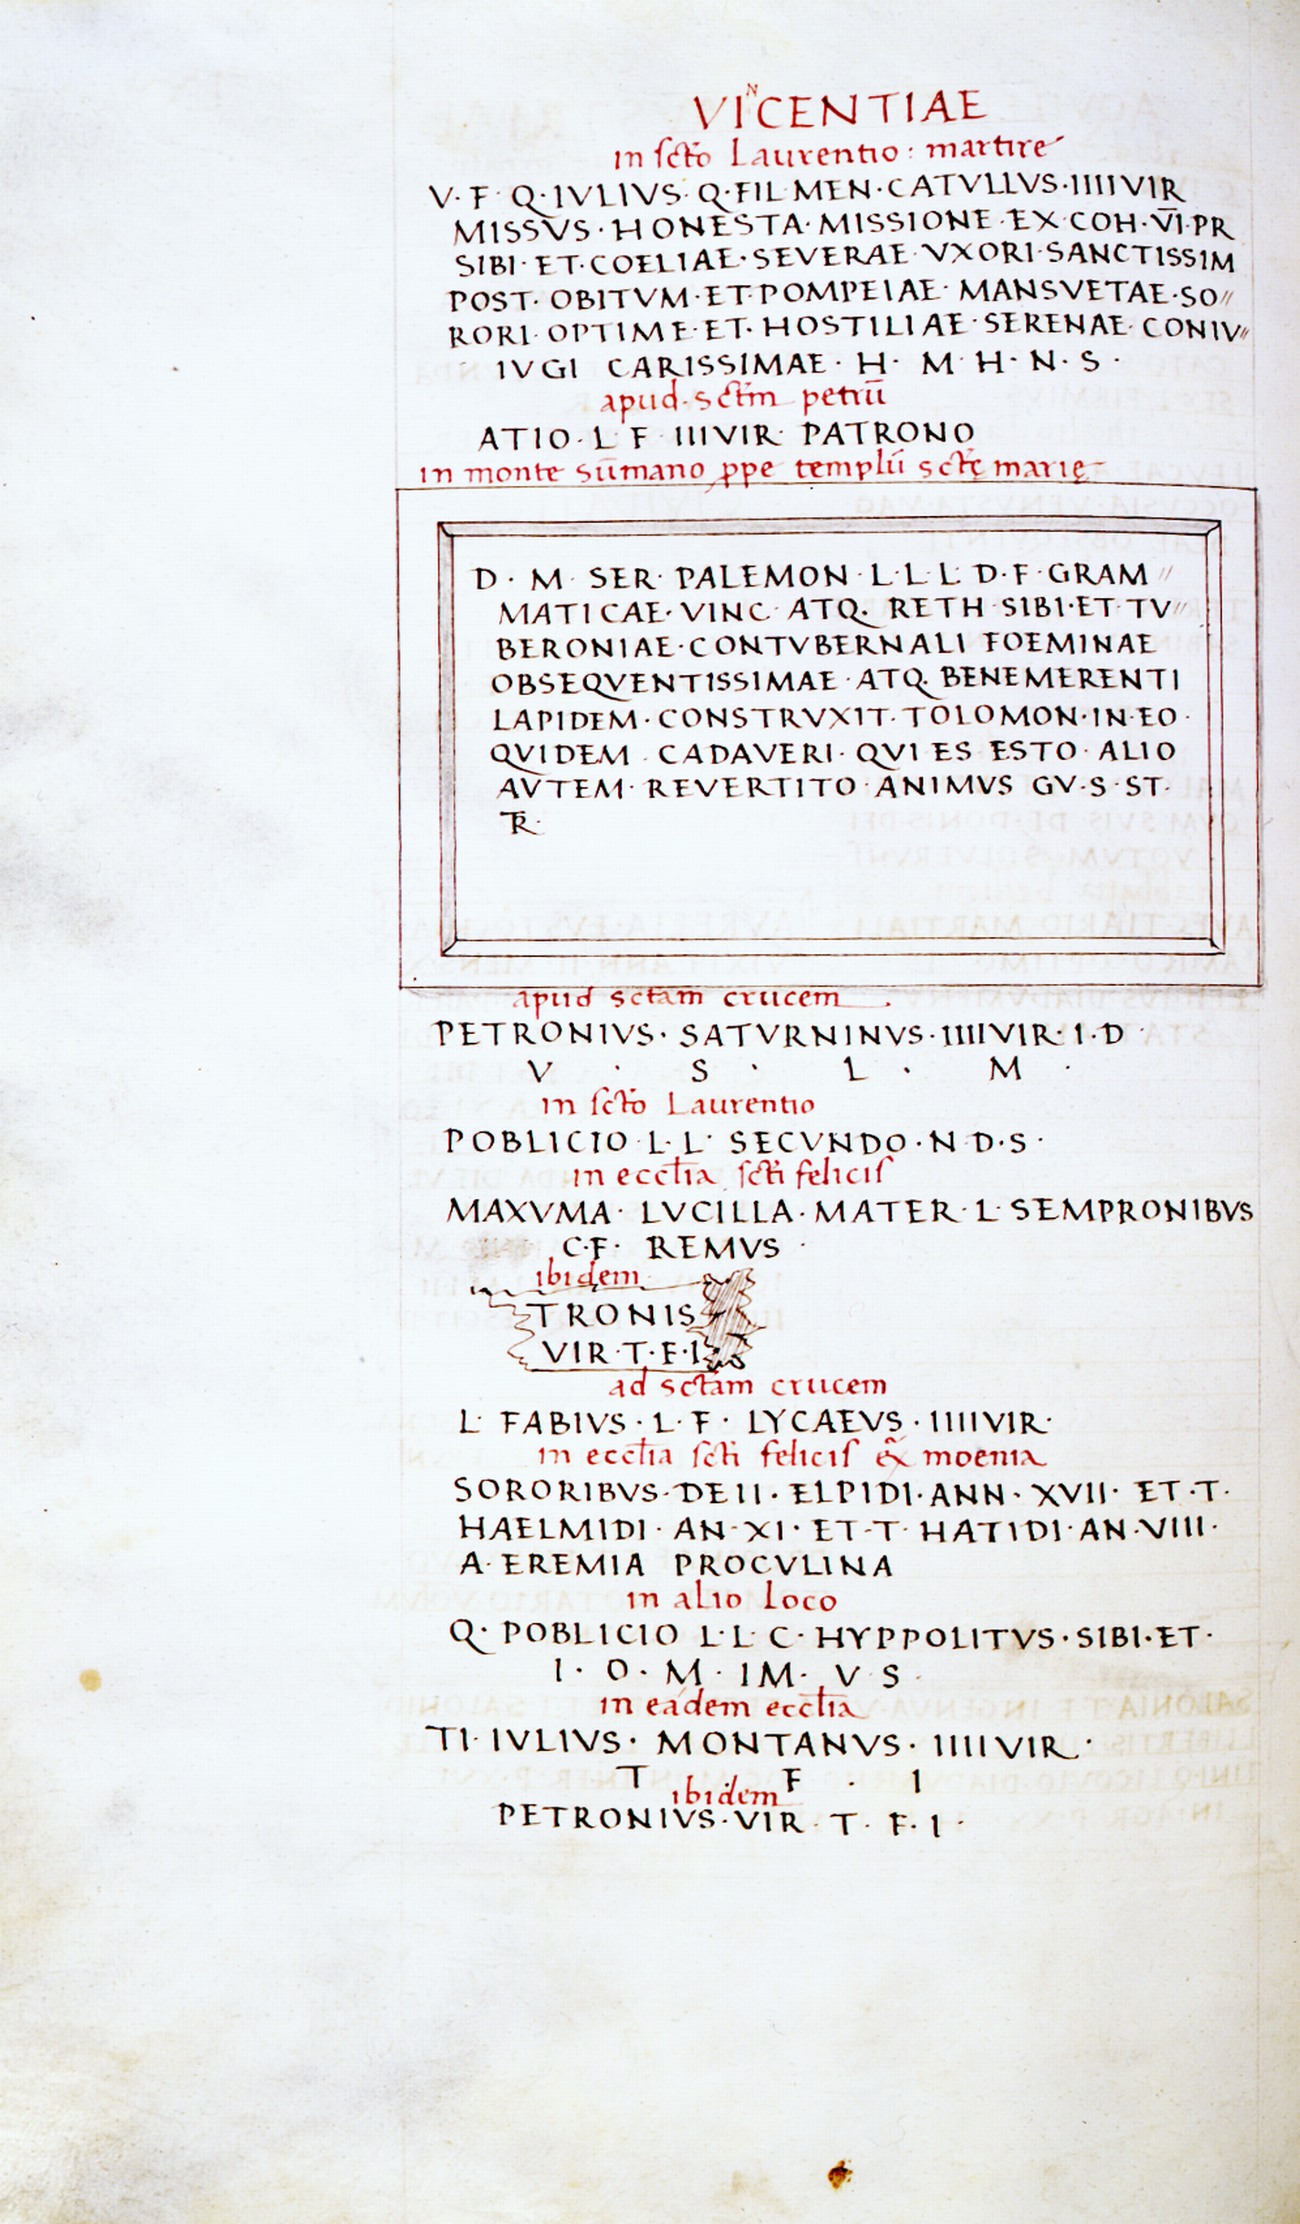 VINCENTIAE
in scto Laurentio: martire
V· F· Q· IVLIVS· Q·FIL MEN·CATVLLVS·IIIIVIR
MISSVS·HONESTA·MISSIONE·EX·COH·V̅I̅·PR
SIBI·ET·COELIAE·SEVERAE·VXORI·SANCTISSIM
POST·OBITVM·ET·POMPEIAE·MANSVETAE·SO//
RORI·OPTIME·ET·HOSTILIAE·SERENAE·CONIV//
IVGI CARISSIMAE· H· M· H· N· S·
apud·sctm̄ petrū
ATIO·L·F·IIIIVIR· PATRONO
in monte sūmano ꝓpe templū sctę marię
D· M· SER· PALEMON·L·L·L·D·F·GRAM//
MATICAE·VINC·ATQ· RETH·SIBI·ET·TV//
BERONIAE·CONTVBERNALI FOEMINAE
OBSEQVENTISSIMAE·ATQ· BENEMERENTI
LAPIDEM·CONSTRVXIT·TOLOMON·IN·EO·
QVIDEM·CADAVERI·QVI ES ESTO·ALIO
AVTEM·REVERTITO·ANIMVS GV·S·ST·
T̅R̅·
apud sctam crucem
PETRONIVS·SATVRNINVS·IIIIVIR·I·D·
V · S · L · M ·
in scto Laurentio
POBLICIO·L·L· SECVNDO·N·D·S·
in eccl̄ia scti felicis
MAXVMA·LVCILLA·MATER·L·SEMPRONIBVS
C·F· REMVS·
ibidem
TRONIS
VIR·T·F·I
ad sctam crucem
L· FABIVS·L·F· LYCAEVS·IIIIVIR·
in eccl̄ia scti felicis ex̃ moenia
SORORIBVS·DE II·ELPIDI·ANN·XVII· ET·T·
HAELMIDI·AN·XI·ET·T·HATIDI·AN·VIII·
A·EREMIA PROCVLINA
in alio loco
Q· POBLICIO L·L·C·HYPPOLITVS·SIBI·ET·
I· O· M· IM· V·S·
in eadem eccl̄ia
TI·IVLIVS· MONTANVS· IIIIVIR·
T · F · I
ibidem
PETRONIVS·VIR·T·F·I·